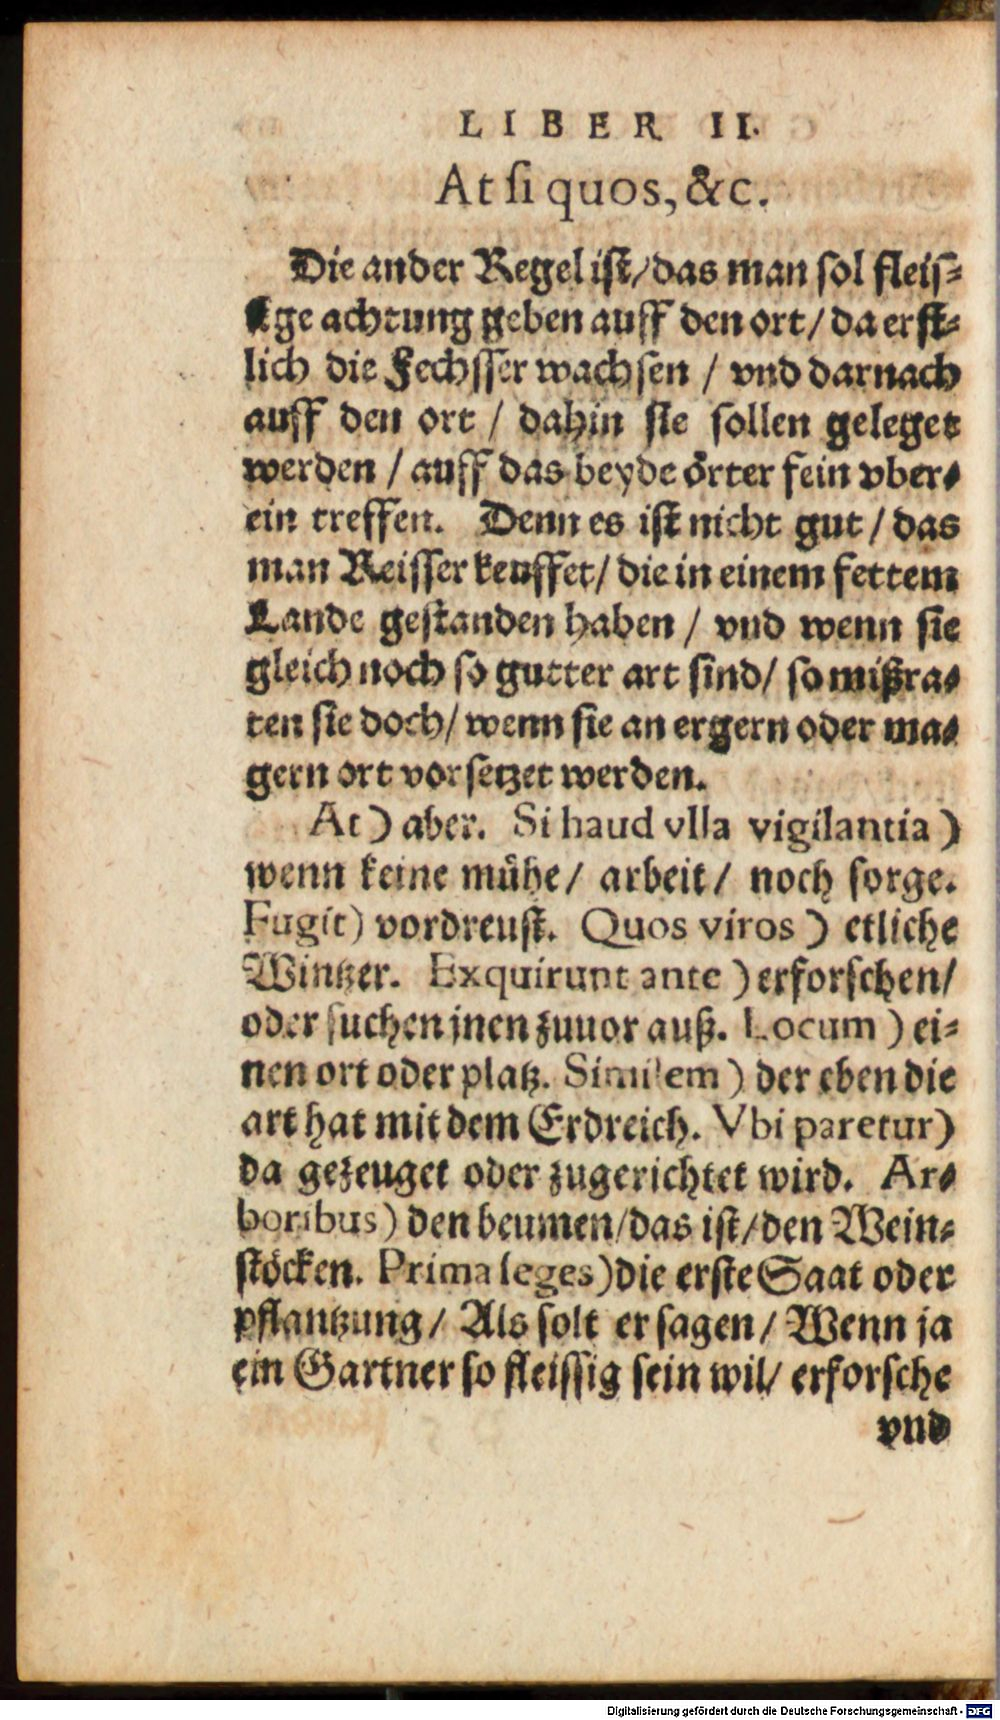 LIBER II.
At si quos, &c.
Die ander Regel ist/ das man sol fleis-
ge achtung geben auff den ort/ da erst-
lich die Fechsser wachsen / vnd darnach
auff den ort / dahin sie sollen geleget
werden / auff das beyde örter fein vber-
ein treffen. Denn es ist nicht gut / das
man Reisser keuffet/ die in einem fettem
Lande gestanden haben / vnd wenn sie
gleich noch so gutter art sind/ so mißra-
ten sie doch/ wenn sie an ergern oder ma-
gern ort vorsetzet werden.
At ) aber. Si haud vlla vigilantia )
wenn keine mühe/ arbeit/ noch sorge.
Fugit) vordreust. Quos viros ) etliche
Wintzer. Exquirunt ante ) erforschen/
oder suchen jnen zuuor auß. Locum ) ei-
nen ort oder platz. Similem ) der eben die
art hat mit dem Erdreich. Vbi paretur)
da gezeuget oder zugerichtet wird. Ar-
boribus) den beumen/das ist/den Wein-
stöcken. Prima seges)die erste Saat oder
pflantzung/ Als solt er sagen/ Wenn ja
ein Gartner so fleissig sein wil/ erforsche
vnd
Digitalisierung gefördert durch die Deutsche Forschungsgemeinschaft - DFG